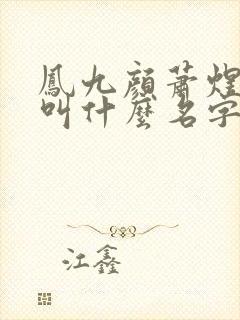 鳳九顏蕭煌
叫什麼名字
江鑫